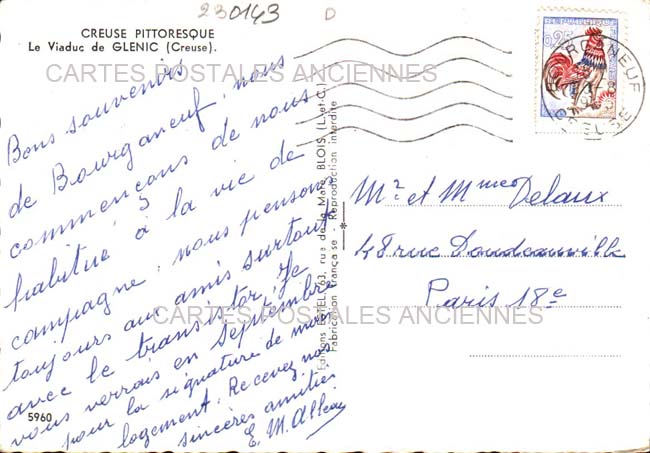 230143
D
CREUSE PITTORESQUE
Le Viaduc de GLENIC (Creuse).
0,25
BOURGANEUF
CREUSE
CARTES POSTALES ANCIENNES
Bons souvenirs
de Bourganeuf, nous
commençons de nous
habitué à la vie de
campagne, nous pensons
toujours aux amis surtout
avec le transistor, Je
vous verrais en Septembre
pour la signature de mon
logement. Recevez nos
sincères amitiés
E. M. Alleau
Editions ESTEL, 63, rue de la Mare, BLOIS (L.-et-C.)
Fabrication française - Reproduction interdite
Mr et Mme Delaux
48 rue Doudeauville
Paris 18e
CARTES POSTALES ANCIENNES
5960